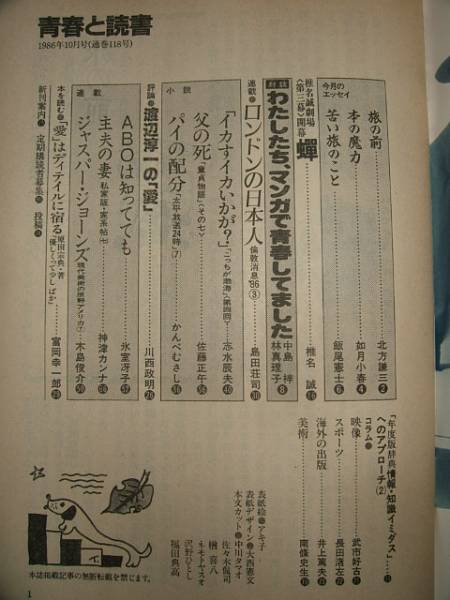 青春と読書
1986年10月号(通巻118号)
今月のエッセイ
旅の前 北方謙三 2
本の魔力 如月小春 4
苦い旅のこと 飯尾憲士 6
椎名誠劇場
〈第三幕〉開幕 蟬 椎名 誠 16
対談 わたしたち、マンガで青春してました 中島 梓 林真理子 8
連載 ロンドンの日本人 倫敦消息'86 ③ 島田荘司 30
小説
「イカすイカいかが?」「こっちが渤海」〈第四回〉 志水辰夫 40
父の死「童貞物語」〈その七〉 佐藤正午
パイの配分「太平放送24時」(7) かんべむさし 36
評論 渡辺淳一の「愛」 川西政明 26
連載
ABOは知ってても 氷室冴子 52
主夫の妻 私家版・家系帖〈七〉 神津カンナ
ジャスパー・ジョーンズ 現代美術の原野アメリカ 木島俊介
本を読む 「愛」はディテイルに宿る 原田宗典・著「優しくって少しばか」 富岡幸一郎
新刊案内 定期購読者募集 投稿
「年度版辞典情報・知識イミダス」へのアプローチ(2)
コラム
映像 武市好古
スポーツ 長田渚左 22
海外の出版 井上篤夫
美術 南條史生
表紙絵 アキ子
表紙デザイン 大西憲文
本文カット 中川タオ
佐々木侃司
楢 喜八
ネモトヤスオ
沢野ひとし
福田典高
本誌掲載記事の無断転載を禁じます。
1